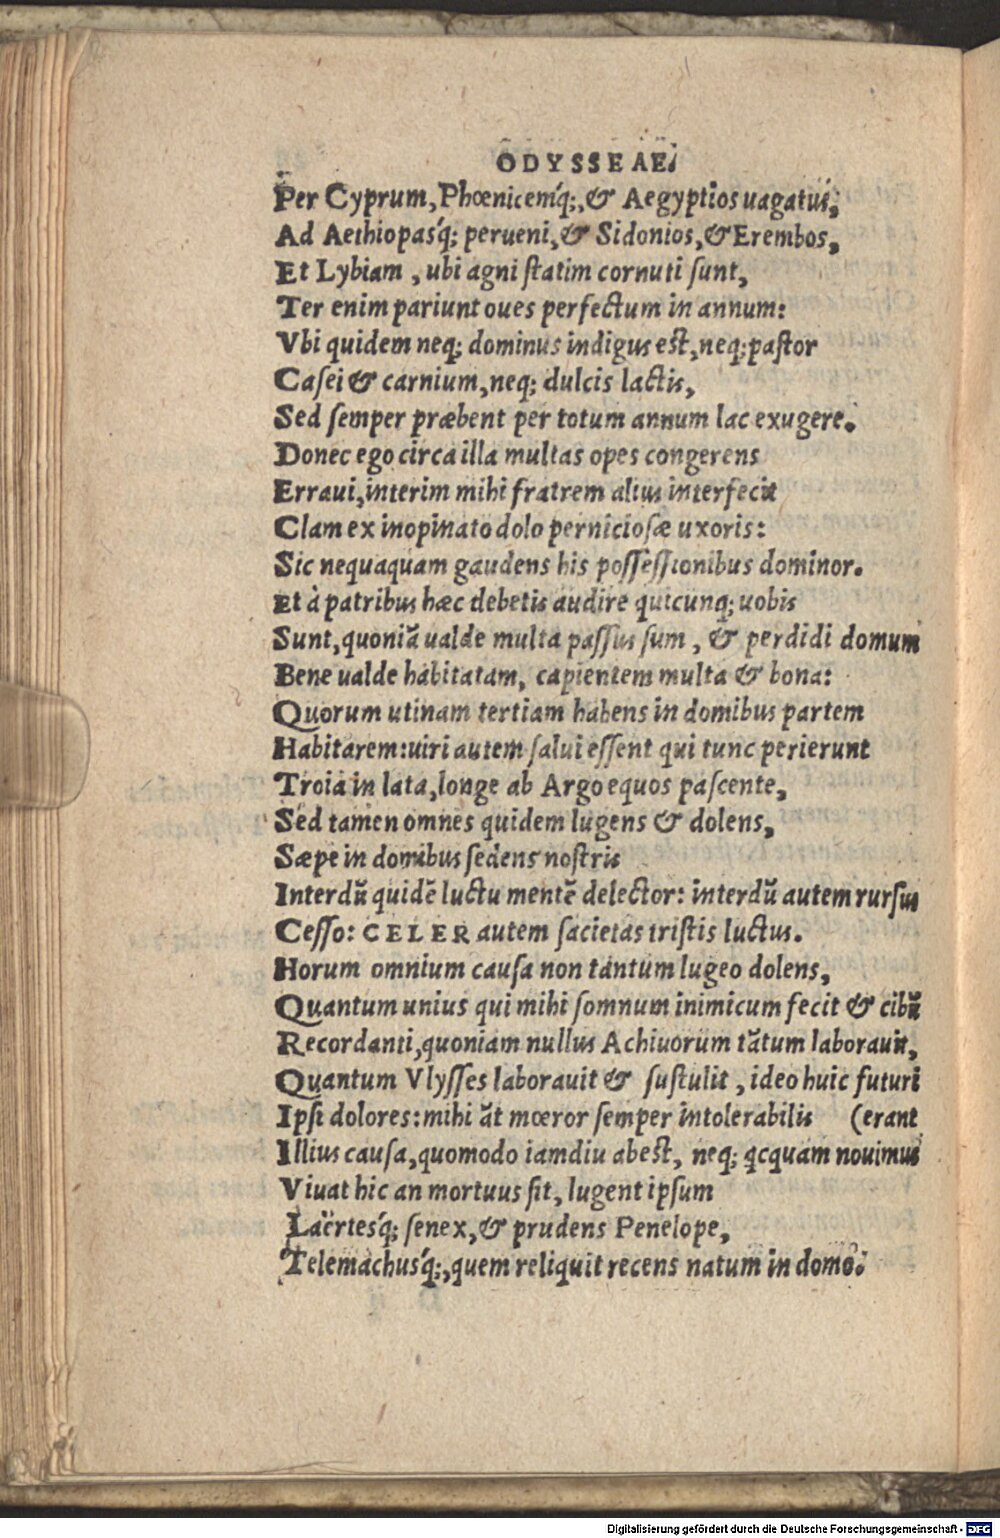 ODYSSEAE.
Per Cyprum, Phœnicemq́;, & Aegyptios uagatus,
Ad Aethiopasq́; perueni, & Sidonios, & Erembos,
Et Lybiam, ubi agni statim cornuti sunt,
Ter enim pariunt oues perfectum in annum:
Vbi quidem neq; dominus indigus est, neq; pastor
Casei & carnium, neq; dulcis lactis,
Sed semper præbent per totum annum lac exugere.
Donec ego circa illa multas opes congerens
Erraui, interim mihi fratrem alius interfecit
Clam ex inopinato dolo perniciosæ uxoris:
Sic nequaquam gaudens his possessionibus dominor.
Et à patribus hæc debetis audire quicunq; uobis
Sunt, quoniã ualde multa passus sum, & perdidi domum
Bene ualde habitatam, capientem multa & bona:
Quorum utinam tertiam habens in domibus partem
Habitarem: uiri autem salui essent qui tunc perierunt
Troia in lata, longe ab Argo equos pascente,
Sed tamen omnes quidem lugens & dolens,
Sæpe in domibus sedens nostris
Interdũ quidẽ luctu mentẽ delector: interdũ autem rursus
Cesso: CELER autem sacietas tristis luctus.
Horum omnium causa non tantum lugeo dolens,
Quantum unius qui mihi somnum inimicum fecit & cibũ
Recordanti, quoniam nullus Achiuorum tãtum laborauit,
Quantum Vlysses laborauit & sustulit, ideo huic futuri
Ipsi dolores: mihi ãt mœror semper intolerabilis (erant
Illius causa, quomodo iamdiu abest, neq; qcquam nouimus
Viuat hic an mortuus sit, lugent ipsum
Laërtesq́; senex, & prudens Penelope,
Telemachusq́;, quem reliquit recens natum in domo.
Digitalisierung gefördert durch die Deutsche Forschungsgemeinschaft - DFG